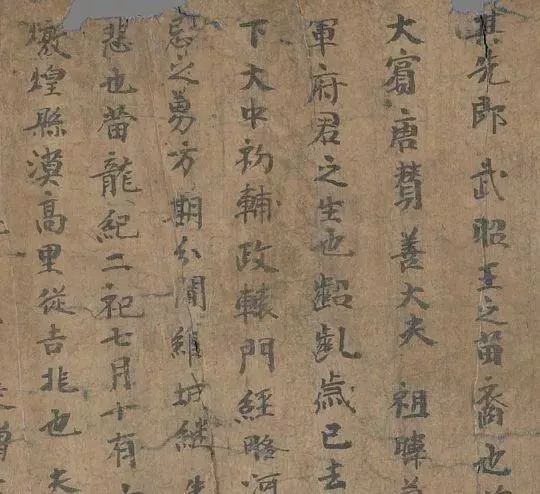 其先即武昭王之苗裔也
大賓唐贊善大夫祖暉
軍府君之生也齠齔歲已去
下大中初輔政轅門經略河
忌之勇方期分閫維城継
悲也當龍紀二祀七月十有
燉煌縣漠高里從吉兆也夫